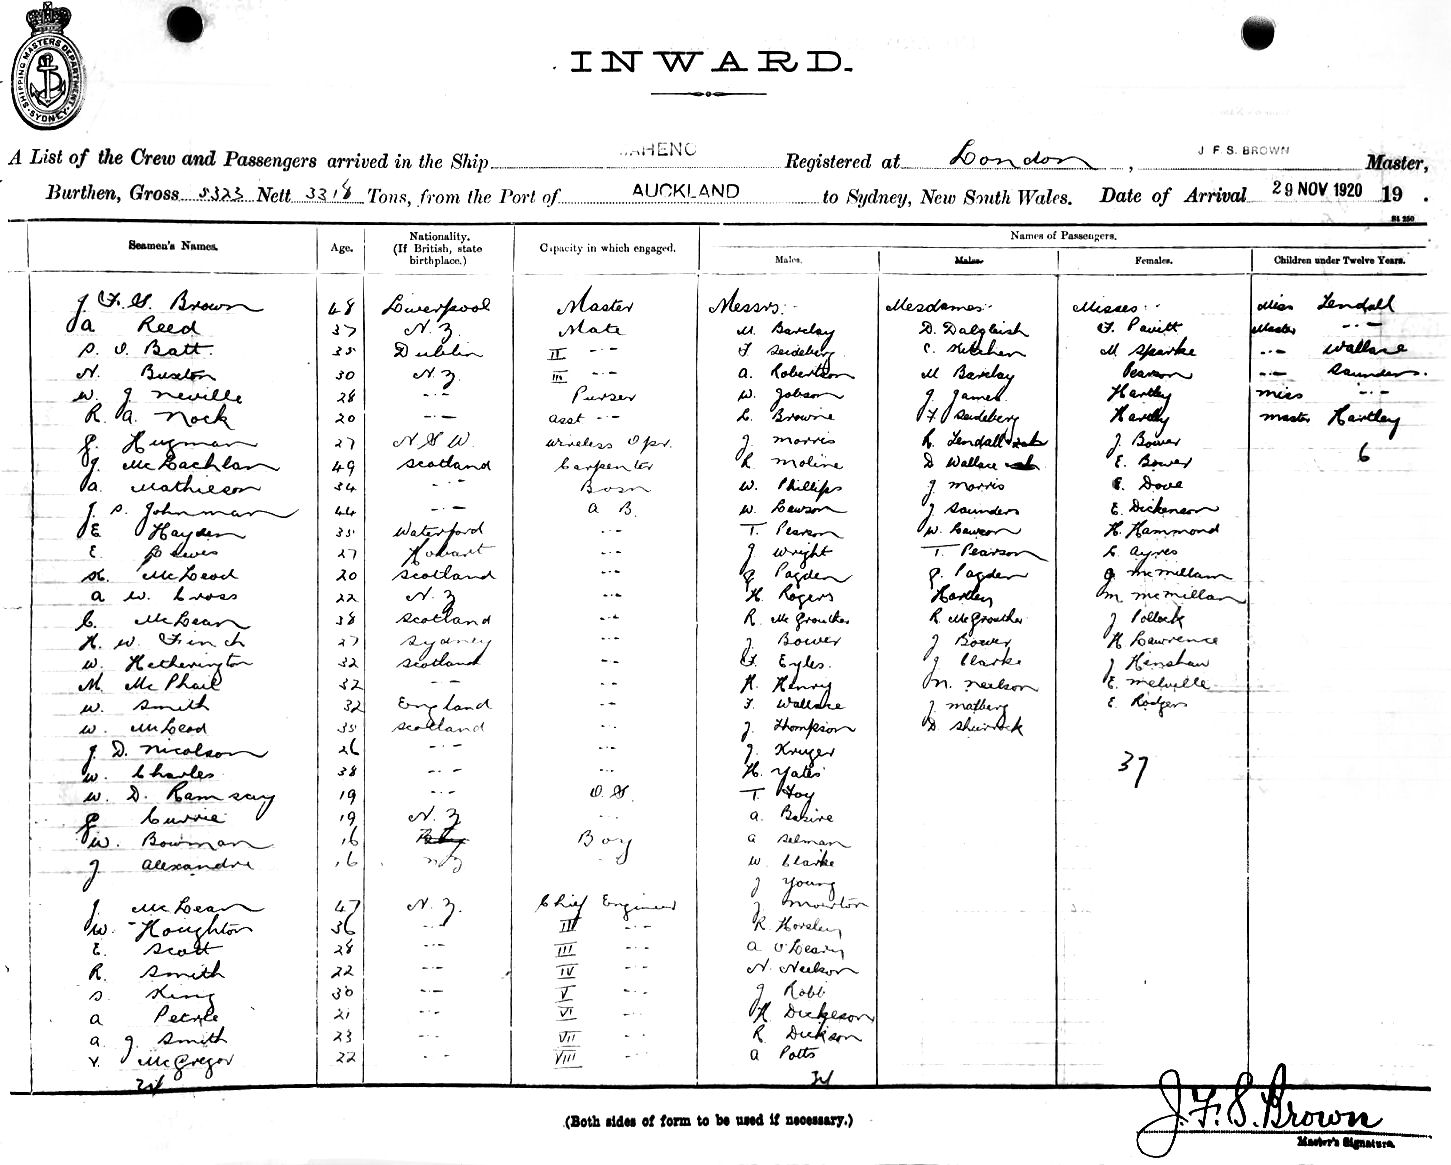 SHIPPING MASTERS DEPARTMENT SYDNEY
INWARD.
A List of the Crew and Passengers arrived in the Ship AHENO Registered at London, J F S. BROWN Master,
Burthen, Gross 5323 Nett 3318 Tons, from the Port of AUCKLAND to Sydney, New South Wales. Date of Arrival 29 NOV 1920 19 .
St 250
Seamen's Names. Age. Nationality. (If British, state birthplace.) Capacity in which engaged. Names of Passengers.
Males. Males. Females. Children under Twelve Years.
J F. S. Brown 48 Liverpool Master Messrs. Mesdames. Misses. Miss Lendall
A Reed 37 N. Z. Mate M. Barclay D. Dalgleish F. Pavitt Master -"-
S. O. Batt. 35 Dublin II -"- F Seideberg C. Kitchen M Sparke -"- Wallace
N. Buxton 30 N. Z. III -"- A. Robertson M Barclay Pearson -"- Saunders.
W. J. Neville 28 -"- Purser W. Jobson J. James Hartley Miss -"-
R. A. Nock 20 -"- Asst -"- C. Browne F Seideberg Hartley Master Hartley
J. Hugman 27 N S W. Wireless Opr. J. Morris R. Lendall J Bower 6
J. McLachlan 49 Scotland Carpenter R Moline D Wallace E. Bower
A. Mathieson 34 -"- Bosn W. Phillips J Morris E. Dove
J. S. Johnman 44 -"- A B. W. Lawson J Saunders E. Dickenson
E Hayden 35 Waterford -"- T. Pearson W. Lawson H. Hammond
E. Lewis 27 Hobart -"- J Wright T. Pearson C. Ayres
K. McLeod 20 Scotland -"- J Pagden J. Pagden J. McMillan
A W. Cross 22 N. Z -"- H. Rogers Hartley M McMillan
C. McLean 38 Scotland -"- R. McGrouther R McGrouther J Pollock
H. W. Finch 27 Sydney -"- J Bower J Bower H Lawrence
W. Hetherington 32 Scotland -"- F. Eyles. J Clarke J Henshaw
M. McPhail 32 -"- -"- H. Henry N. Neilson E. Melville
W. Smith 32 England -"- F. Wallace J. Matberg E Rodgers
W. McLeod 35 Scotland -"- J. Thompson D. Shirrock
J. D. Nicolson 26 -"- -"- J. Kruger
W. Charles 38 -"- -"- H. Yates 37
W. D. Ramsay 19 -"- O. S. T Hoy
J Currie 19 N. Z -"- A. Basire
W. Bowman 16 Boy A Selman
J. Alexandre 16 NZ -"- W Clarke
J Young
J. McLean 47 N. Z. Chief Engineer J. Moreton
W. Houghton 36 -"- III -"- R Horsley
E. Scott 28 -"- III -"- A O'Leary
R. Smith 22 -"- IV -"- N. Neilson
S. King 30 -"- V -"- J Robb
A Petrie 21 -"- VI -"- H Dickeson
A. J. Smith 23 -"- VII -"- R Dickson
V. McGregor 22 -"- VIII -"- A Potts
34 34
(Both sides of form to be used if necessary.)
J. F. S. Brown
Master's Signature.